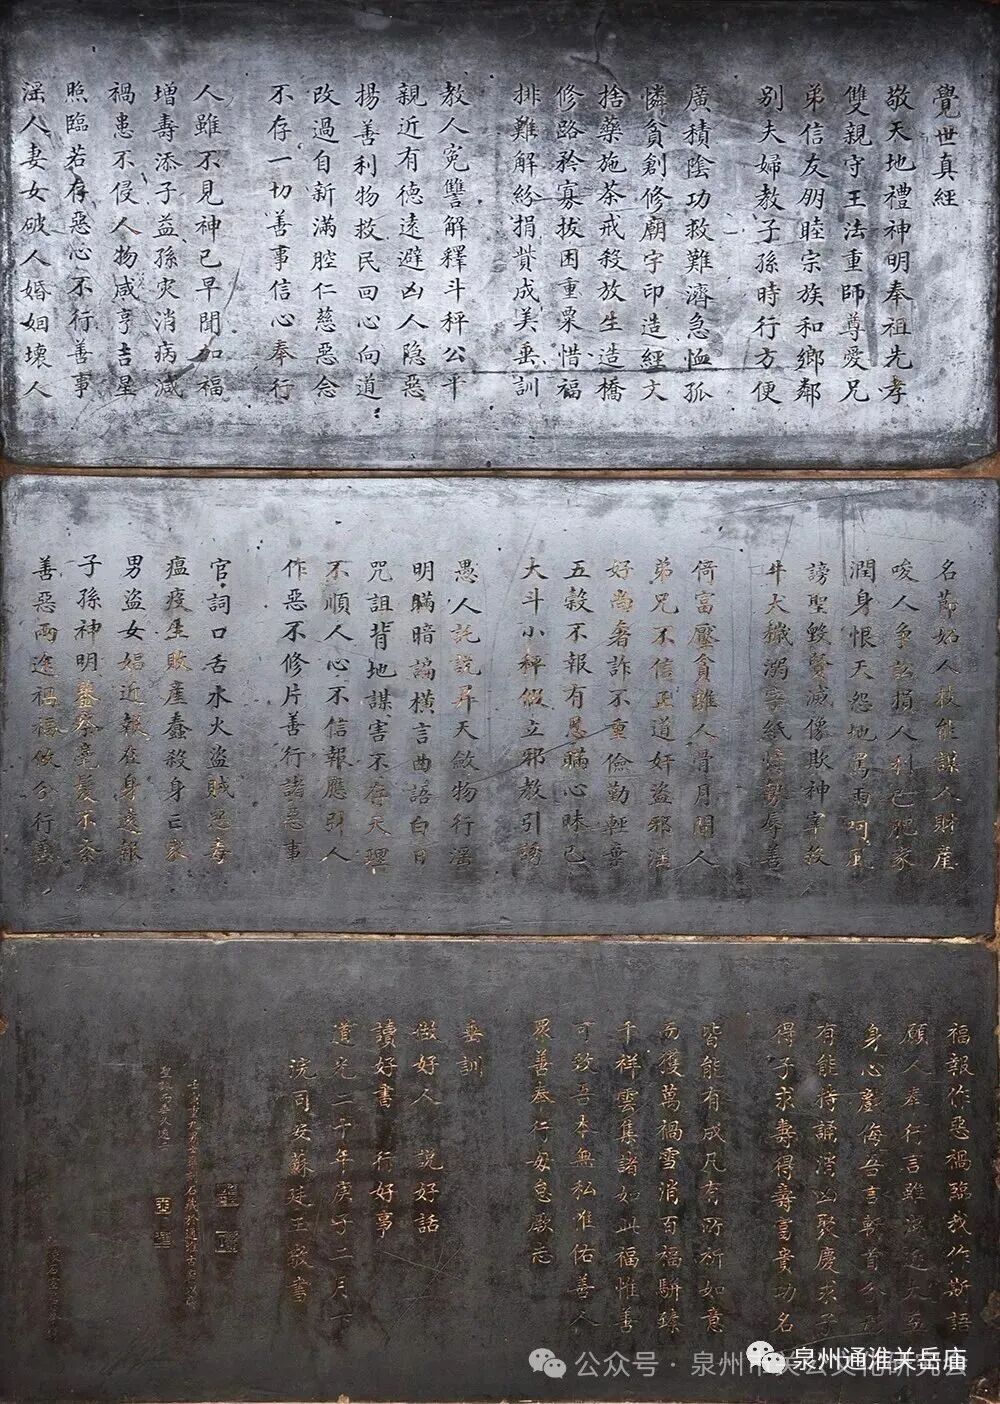 覺世真經
敬天地禮神明奉祖先孝
雙親守王法重師尊愛兄
弟信友朋睦宗族和鄉鄰
別夫婦教子孫時行方便
廣積陰功救難濟急恤孤
憐貧創修廟宇印造經文
捨藥施茶戒殺放生造橋
修路矜寡拔困重粟惜福
排難解紛捐貲成美垂訓
教人冤讐解釋斗秤公平
親近有德遠避凶人隐惡
揚善利物救民回心向道
改過自新滿腔仁慈惡念
不存一切善事信心奉行
人雖不見神已早聞加福
增壽添子益孫灾消病減
禍患不侵人物咸亨吉星
照臨若存惡心不行善事
淫人妻女破人婚姻壞人
名節妬人技能謀人財產
唆人爭訟損人利己肥家
潤身恨天怨地罵雨呵風
謗聖毀賢滅像欺神宰殺
牛犬穢溺字紙恃勢辱善
倚富壓貧離人骨肉間人
弟兄不信正道奸盜邪淫
好尚奢詐不重儉勤輕棄
五穀不報有恩瞞心昧己
大斗小秤假立邪教引誘
愚人託說昇天斂物行淫
明瞞暗騙橫言曲語白日
咒詛背地謀害不存天理
不順人心不信報應引人
作惡不修片善行諸惡事
官詞口舌水火盜賊惡毒
瘟疫生敗產蠢殺身亡家
男盜女娼近報在身遠報
子孫神明鑒察毫髮不紊
善惡兩途禍福攸分行善
福報作惡禍臨我作斯語
願人奉行言雖淺近大益
身心戲侮吾言斬首分形
有能持誦消凶聚慶求子
得子求壽得壽富貴功名
皆能有成凡有所祈如意
而獲萬禍雪消百福駢臻
千祥雲集諸如此福惟善
可致吾本無私惟佑善人
眾善奉行毋怠厥志
垂訓
做好人 說好話
讀好書 行好事
道光二十年庚子二月下
浣同安蘇廷玉敬書
公众号·泉州市关公文化研究会
泉州通淮关岳庙